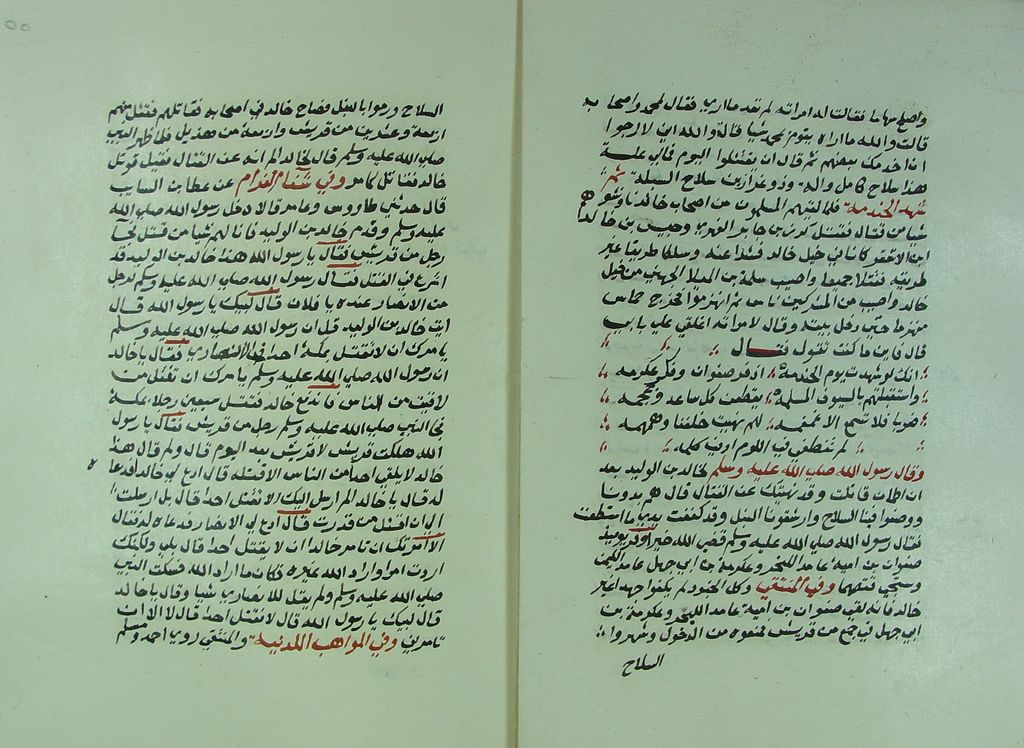 واصلح منها ما فقالت له امراته لم تعد ما ارى فقال لمحمد واصحابه
قالت والله ما اراه يقوم لمحمد شيا قال والله اني لارجوا
ان اخدمك بعضهم ثم قال ان يقتلوا اليوم فمالي علة
هذا سلاح كامل واله وذو غرارين سلاح السلة ثم
شهد الخندمة فلما لقيهم المسلمون من اصحاب خالد ناوشوهم
شيا من قتال فقتل كرز بن جابر الفهري وحبيس بن خالد
ابن الاشقر كانا في خيل خالد فشذا عنه وسلكا طريقا غير
طريقه فقتلا جميعا واصيب سلمة بن الميلا الجهني من خيل
خالد واصيب من المشركين ناس ثم انهزموا فخرج حماس
منهزما حتى دخل بيته وقال لامراته اغلقي علي بابي
قال فاين ما كنت تقول فقال
انك لو شهدت يوم الخندمة اذ فر صفوان وفر عكرمه
واستقبلتهم بالسيوف المسلمه يقطعن كل ساعد وجمجمه
ضربا فلا تسمع الا غمغمه لهم نهيت خلفنا وهمهمه
لم تنطقي في اللوم ادنى كلمه
وقال رسول الله صلى الله عليه وسلم لخالد بن الوليد بعد
ان اطمان قاتلت وقد نهيتك عن القتال قال هم بدونا
ووضعوا فينا السلاح وارشقونا النبل وقد كففت يدي ما استطعت
فقال رسول الله صلى الله عليه وسلم قضى الله خير وفر يوميذ
صفوان بن امية عامدا للبحر وعكرمة بن ابي جهل عامدا لليمن
وسيجي قصتهما وفي المنتقى وكل الجنود لم يلقوا جهدا غير
خالد فانه لقي صفوان بن امية عامد اللبحر وعكرمة بن
ابي جهل في جمع من قريش فمنعوه من الدخول وشهروا
السلاح
السلاح ورموا بالنبل فصاح خالد في اصحابه فقاتلهم فقتل منهم
اربعة وعشرين من قريش واربعة من هذيل فلما ظهر النبي
صلى الله عليه وسلم قال لخالد الم انه عن القتال فقيل قوتل
خالد فقاتل كامر وفي شفاء الغرام عن عطا بن السايب
قال حدثني طاووس وعامر قالا دخل رسول الله صلى الله
عليه وسلم وقدم خالد بن الوليد فانالهم شيا من قتل فجا
رجل من قريش فقال يا رسول الله هذا خالد بن الوليد قد
اسرع في القتل فقال رسول الله صلى الله عليه وسلم لرجل
من الانصار عنده يا فلان قال لبيك يا رسول الله قال
ايت خالد بن الوليد قل ان رسول الله صلى الله عليه وسلم
يامرك ان لا تقتل بمكة احدا فجا الانصاري فقال يا خالد
ان رسول الله صلى الله عليه وسلم يامرك ان تقتل من
لاقيت من الناس فاندفع خالد فقتل سبعين رجلا بمكة
فجا النبي صلى الله عليه وسلم رجل من قريش فقال يا رسول
الله هلكت قريش لا قريش بعد اليوم قال ولم قال هذا
خالد لا يلقى احدا من الناس الا قتله قال ادع لي خالد فدعا
له قال يا خالد الم ارسل اليك الا تقتل احدا قال بل ارسلت
الي ان اقتل من قدرت قال ادع لي الانصار فدعاه له فقال
الا امرتك ان تامر خالدا ان لا يقتل احدا قال بلى ولكنك
اردت امرا واراد الله غيره فكان ما اراد الله فسكت النبي
صلى الله عليه وسلم ولم يقل للانصاري شيا وقال يا خالد
قال لبيك يا رسول الله قال لا تقتل احدا قال لا الا ان
تامرني وفي المواهب اللدنية والمنتقى روى احمد ومسلم